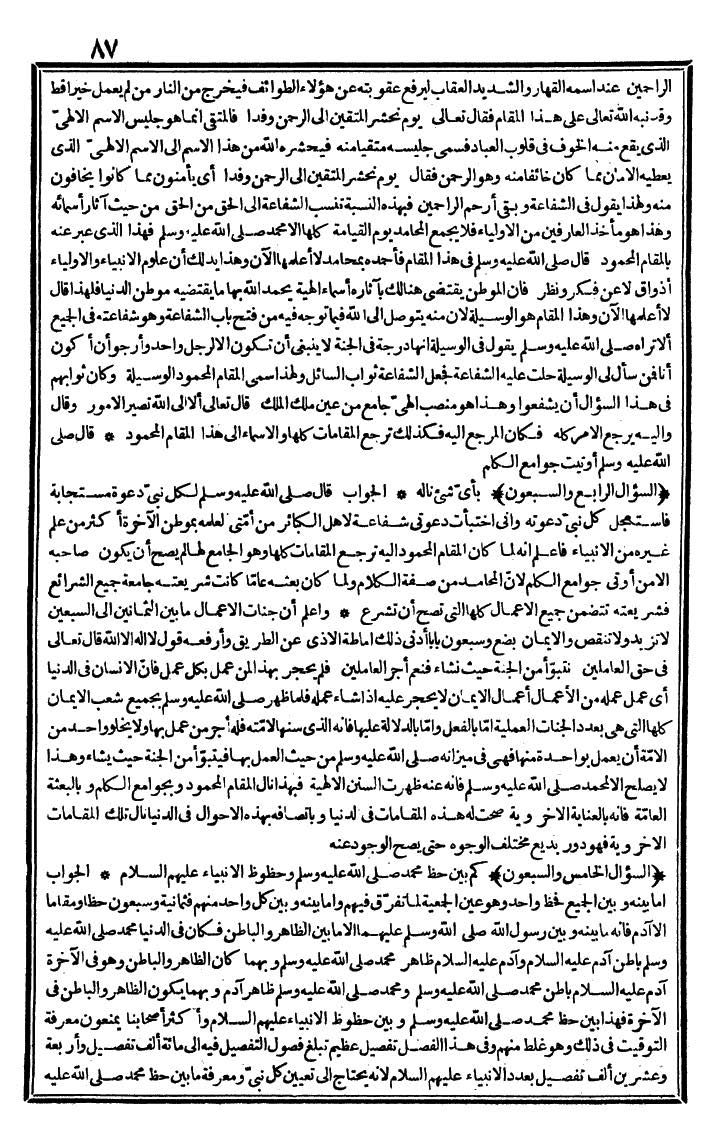 ٨٧
الراحمين عند اسمه القهار والشديد العقاب ليرفع عقوبته عن هؤلاء الطوائف فيخرج من النار من لم يعمل خيرا قط
وقد نبه الله تعالى على هذا المقام فقال تعالى يوم نحشر المتقين الى الرحمن وفدا فالمتقى انما هو جليس الاسم الالهىّ
الذى يقع منه الخوف فى قلوب العباد فسمى جليسه متقيا منه فيحشره الله من هذا الاسم الى الاسم الالهىّ الذى
يعطيه الامان مما كان خائفا منه وهو الرحمن فقال يوم نحشر المتقين الى الرحمن وفدا أى يأمنون مما كانوا يخافون
منه ولهذا يقول فى الشفاعة وبقى أرحم الراحمين فبهذه النسبة تنسب الشفاعة الى الحق من الحق من حيث آثار أسمائه
وهذا هو مأخذ العارفين من الاولياء فلا يجمع المحامد يوم القيامة كلها الا محمد صلى الله عليه وسلم فهذا الذى عبر عنه
بالمقام المحمود قال صلى الله عليه وسلم فى هذا المقام فأحمده بمحامد لا أعلمها الآن وهذا يدلك أن علوم الانبياء والاولياء
أذواق لا عن فكر ونظر فان الموطن يقتضى هنالك بآثاره أسماء الهية يحمد الله بها ما يقتضيه موطن الدنيا فلهذا قال
لا أعلمها الآن وهذا المقام هو الوسيلة لان منه يتوصل الى الله فيما توجه فيه من فتح باب الشفاعة وهو شفاعته فى الجميع
ألا تراه صلى الله عليه وسلم يقول فى الوسيلة انها درجة فى الجنة لا ينبغى أن تكون الا لرجل واحد وأرجو أن أكون
أنا فمن سأل لى الوسيلة حلت عليه الشفاعة فجعل الشفاعة ثواب السائل ولهذا سمى المقام المحمود الوسيلة وكان ثوابهم
فى هذا السؤال أن يشفعوا وهذا هو منصب الهىّ جامع من عين ملك الملك قال تعالى ألا الى الله تصير الامور وقال
واليه يرجع الامر كله فكان المرجع اليه فكذلك ترجع المقامات كلها والاسماء الى هذا المقام المحمود * قال صلى
الله عليه وسلم أوتيت جوامع الكلم
﴿السؤال الرابع والسبعون﴾ بأىّ شئ ناله * الجواب قال صلى الله عليه وسلم لكل نبىّ دعوة مستجابة
فاستعجل كل نبىّ دعوته وانى اختبأت دعوتى شفاعة لاهل الكبائر من أمّتى لعلمه بموطن الآخرة أكثر من علم
غيره من الانبياء فاعلم انه لما كان المقام المحمود اليه ترجع المقامات كلها وهو الجامع لها لم يصح أن يكون صاحبه
الا من أوتى جوامع الكلم لانّ المحامد من صفة الكلام ولما كان بعثه عامّا كانت شريعته جامعة جميع الشرائع
فشريعته تتضمن جميع الاعمال كلها التى تصح أن تشرع * واعلم أن جنات الاعمال ما بين الثمانين الى السبعين
لا تزيد ولا تنقص والايمان بضع وسبعون بابا أدنى ذلك اماطة الاذى عن الطريق وأرفعه قول لا اله الا الله قال تعالى
فى حق العاملين نتبوّأ من الجنة حيث نشاء فنعم أجر العاملين فلم يحجر بهذا لمن عمل بكل عمل فانّ الانسان فى الدنيا
أى عمل عمله من الأعمال أعمال الايمان لا يحجر عليه اذا شاء عمله فلما ظهر صلى الله عليه وسلم بجميع شعب الايمان
كلها التى هى بعدد الجنات العملية امّا بالفعل وامّا بالدلالة عليها فانه الذى سنها لامّته فله أجر من عمل بها ولا يخلو واحد من
الامّة أن يعمل بواحدة منها فهى فى ميزانه صلى الله عليه وسلم من حيث العمل بها فيتبوّأ من الجنة حيث يشاء وهذا
لا يصلح الا لمحمد صلى الله عليه وسلم فانه عنه ظهرت السنن الالهية فبهذا نال المقام المحمود وبجوامع الكلم و بالبعثة
العامّة فانه بالعناية الاخروية صحت له هذه المقامات فى لدنيا وباتصافه بهذه الاحوال فى الدنيا نال تلك المقامات
الاخروية فهو دور بديع مختلف الوجوه حتى يصح الوجود عنه
﴿السؤال الخامس والسبعون﴾ كم بين حظ محمد صلى الله عليه وسلم وحظوظ الانبياء عليهم السلام * الجواب
اما بينه وبين الجميع فحظ واحد وهو عين الجمعية لما تفرّق فيهم واما بينه وبين كل واحد منهم فثمانية وسبعون حظا ومقاما
الا آدم فانه ما بينه وبين رسول الله صلى الله وسلم عليهما الا ما بين الظاهر والباطن فكان فى الدنيا محمد صلى الله عليه
وسلم باطن آدم عليه السلام وآدم عليه السلام ظاهر محمد صلى الله عليه وسلم وبهما كان الظاهر والباطن وهو فى الآخرة
آدم عليه السلام باطن محمد صلى الله عليه وسلم ومحمد صلى الله عليه وسلم ظاهر آدم وبهما يكون الظاهر والباطن فى
الآخرة فهذا بين حظ محمد صلى الله عليه وسلم وبين حظوظ الانبياء عليهم السلام وأكثر أصحابنا يمنعون معرفة
التوقيت فى ذلك وهو غلط منهم وفى هذا الفصل تفصيل عظيم تبلغ فصول التفصيل فيه الى مائة ألف تفصيل وأربعة
وعشرين ألف تفصيل بعدد الانبياء عليهم السلام لانه يحتاج الى تعيين كل نبىّ ومعرفة ما بين حظ محمد صلى الله عليه